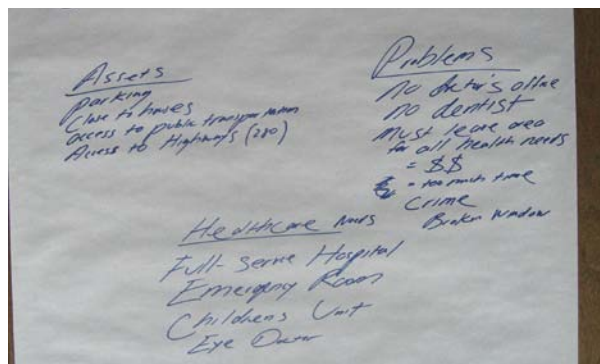 Assets
parking
Close to houses
access to public transportation
Access to Highways (280)
Problems
no doctor's office
no dentist
must leave area
for all health needs
= $$
= too much time
Crime
Broken Window
Healthcare Needs
Full-Serive Hospital
Emergency Room
Childrens Unit
Eye Doctor